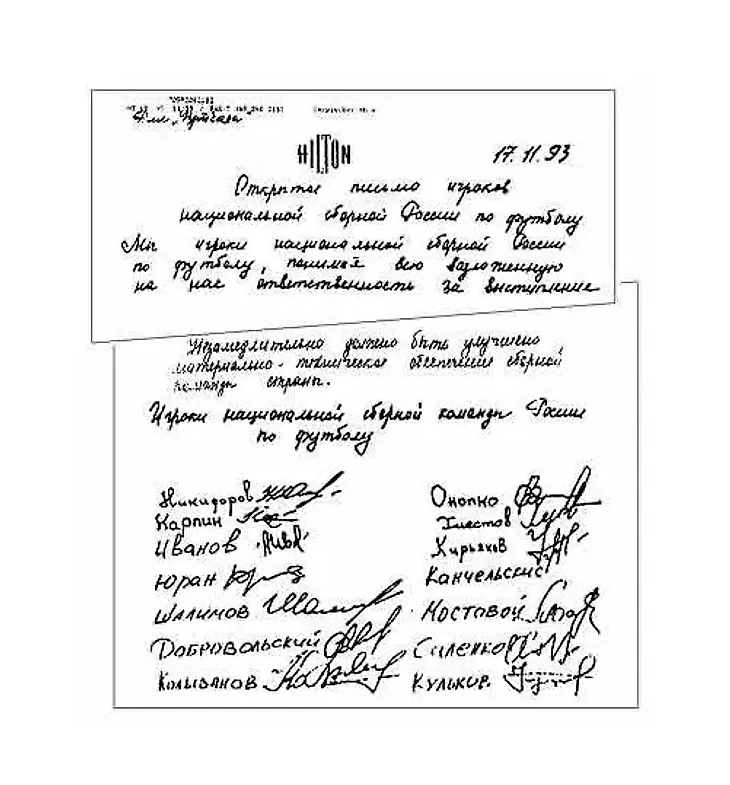 Для "Футбола"
HILTON
17.11.93
Открытое письмо игроков
национальной сборной России по футболу
Мы игроки национальной сборной России
по футболу, понимая всю возложенную
на нас ответственность за выступление
Незамедлительно должно быть улучшено
материально-техническое обеспечение сборной
команды страны.
Игроки национальной сборной команды России
по футболу
Никифоров
Карпин
Иванов
Юран
Шалимов
Добровольский
Колыванов
Онопко
Хлестов
Кирьяков
Канчельскис
Мостовой
Саленко
Кульков